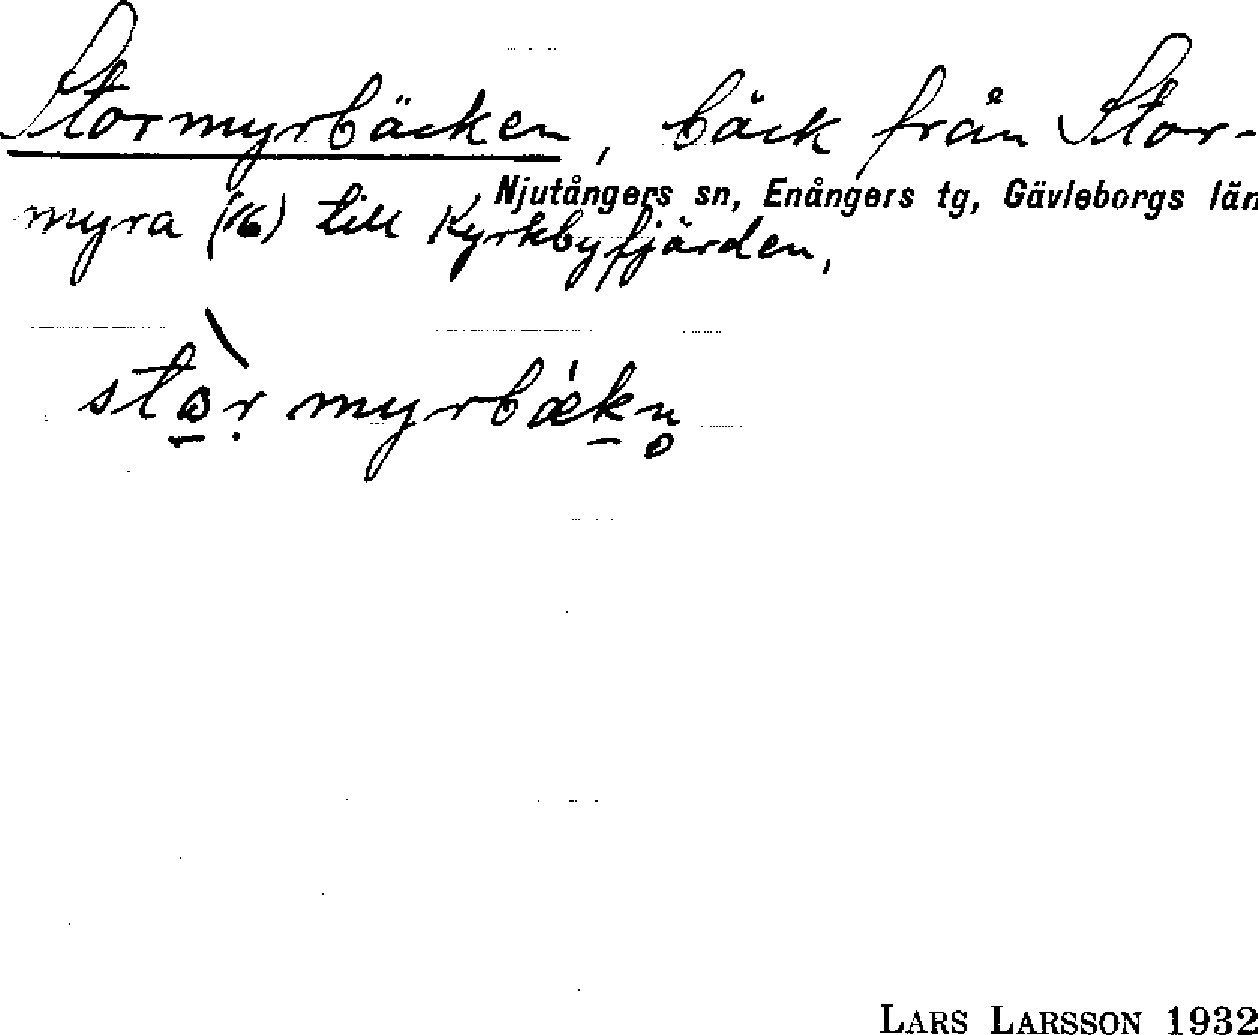 Stormyrbäcken, bäck från Stor-
Njutångers sn, Enångers tg, Gävleborgs län
myra (16) till Kyrkbyfjärden,
LARS LARSSON 1932